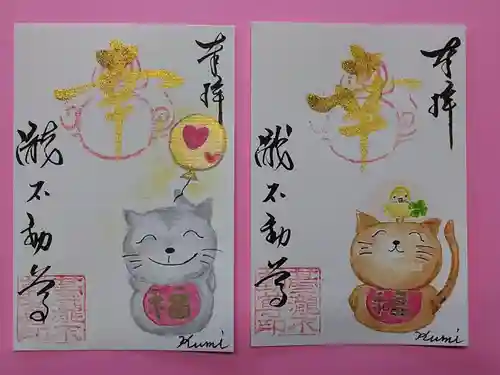 奉拝
華
瀧不動尊
福
Kumi
奉拝
華
瀧不動尊
福
Kumi